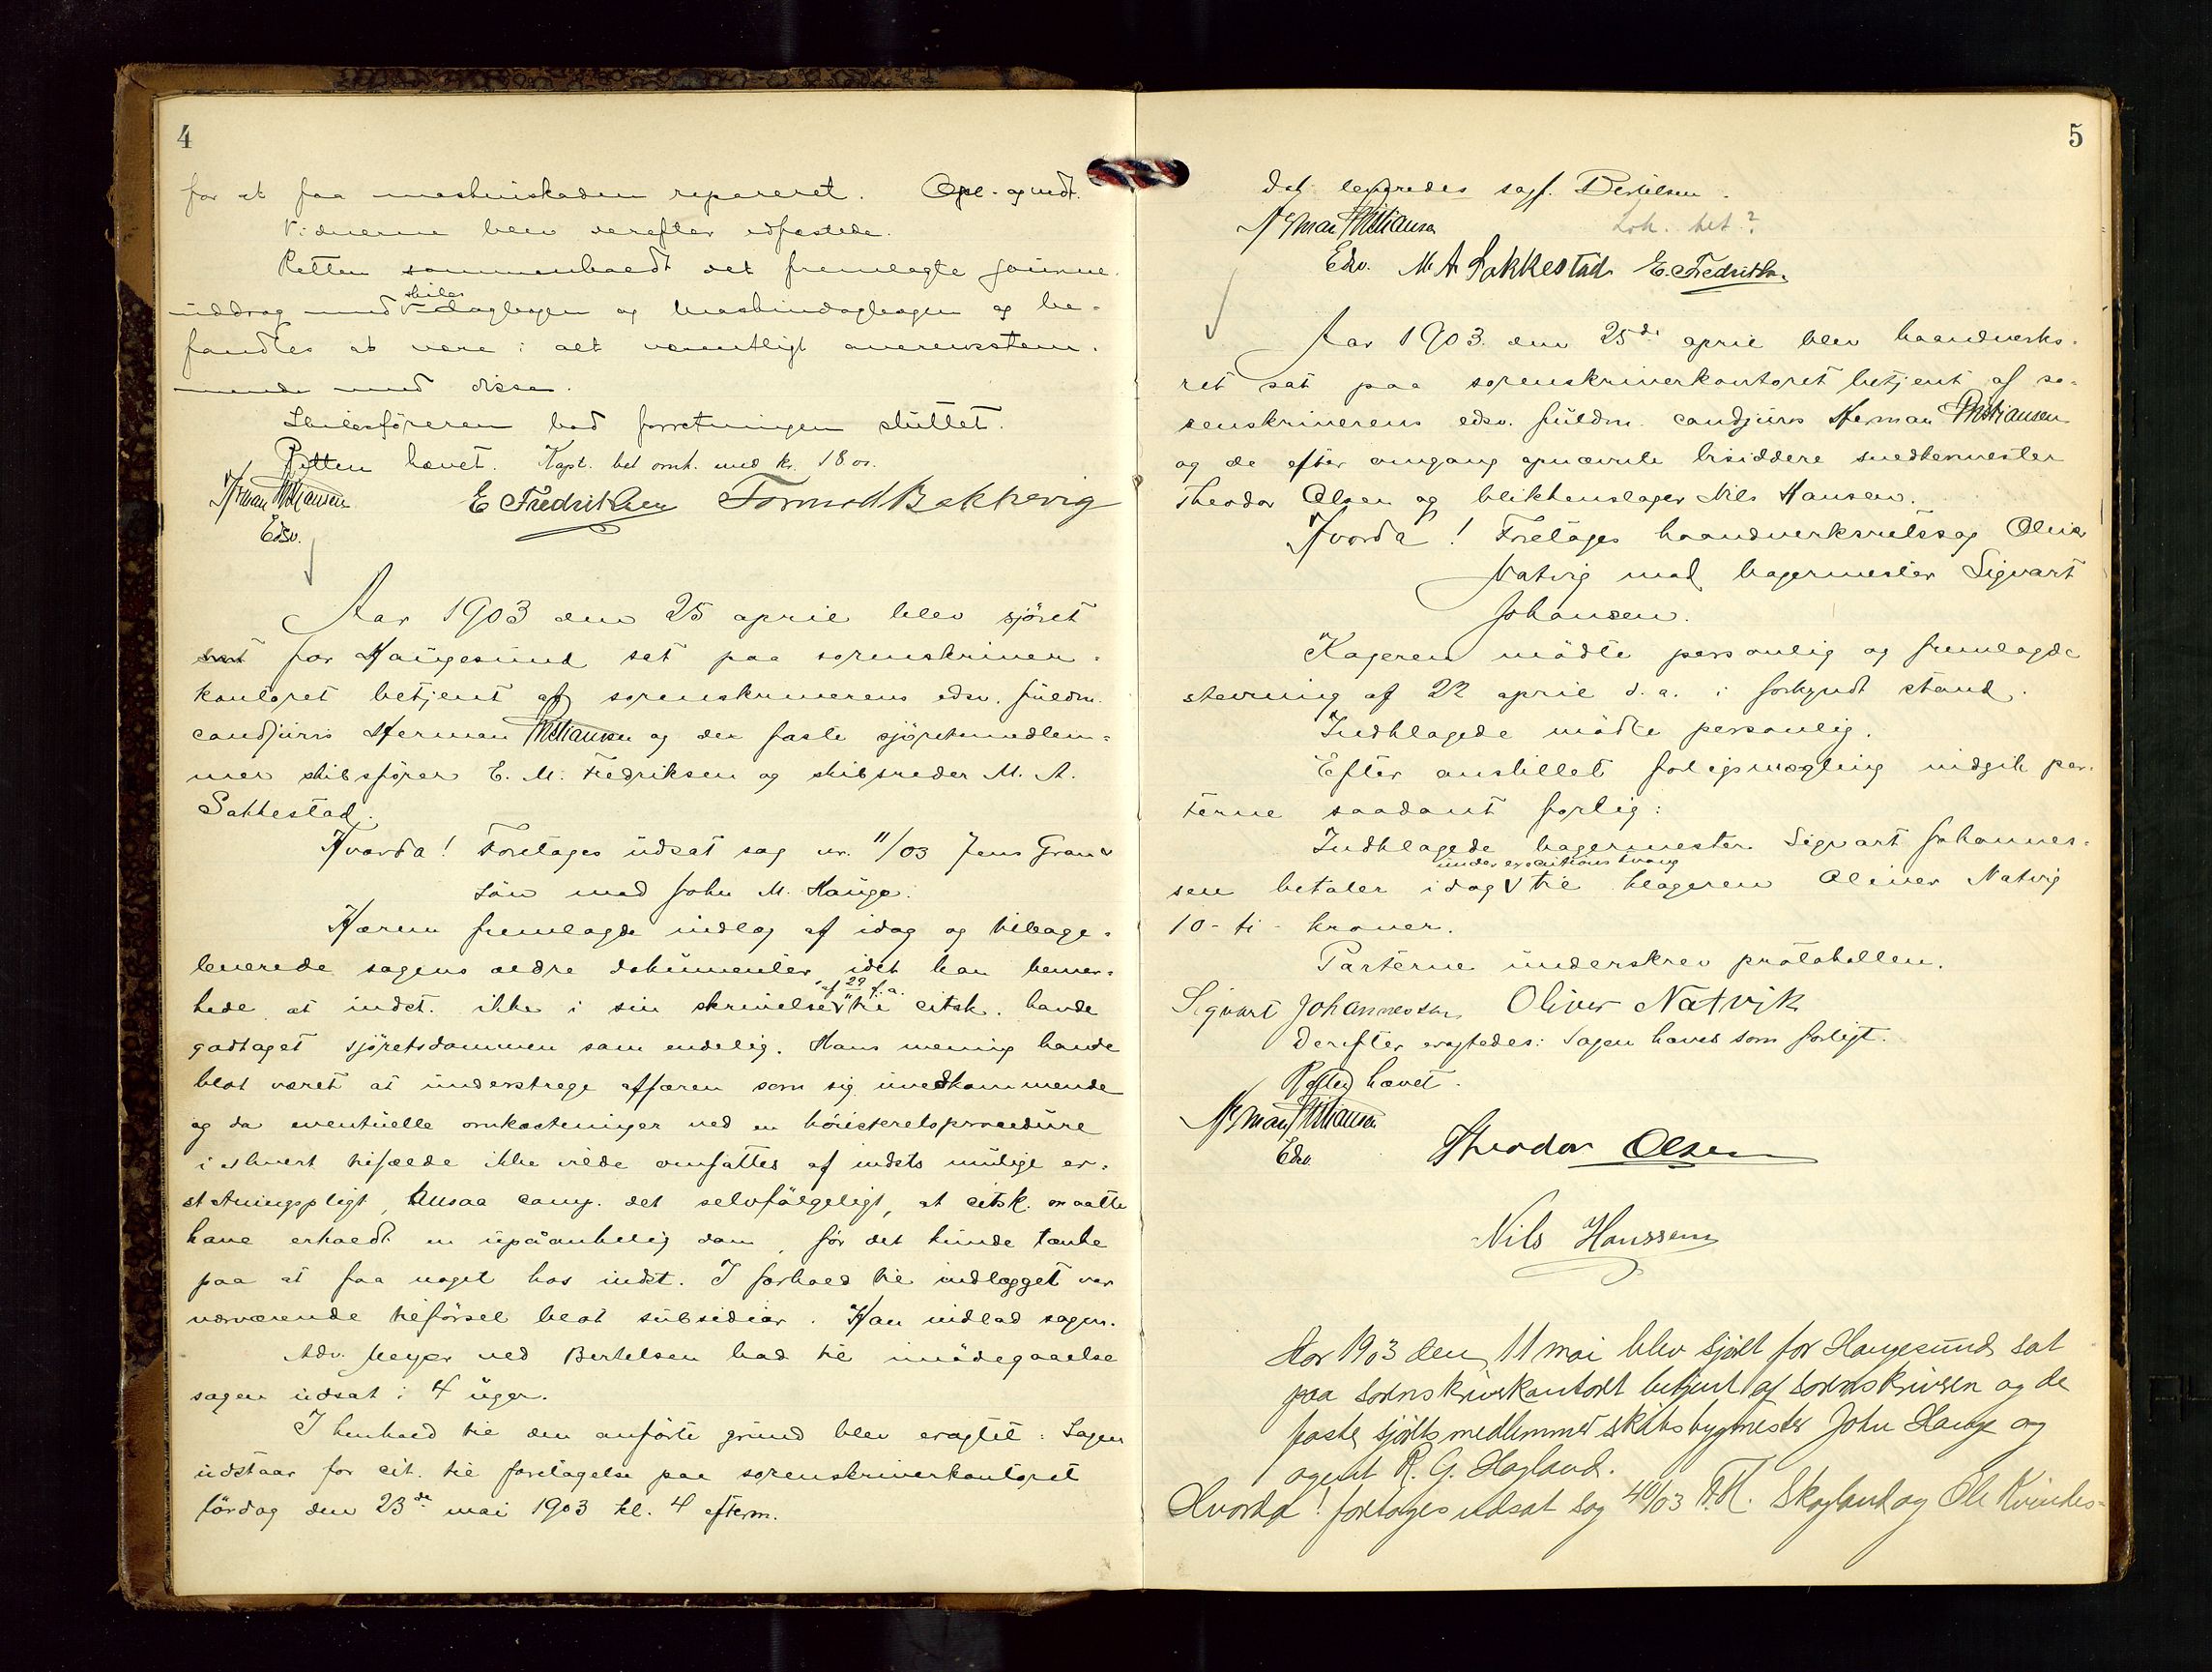 4
for at faa maskinskaden repareret. Opl. og vedt.
Vidnerne blev derefter edfæstede.
Retten sammenholdt det fremlagte journal
uddrag med skibsdagbogen og maskindagbogen og be-
fandtes at være i alt væsentligt overensstem-
mende med disse.
Skibsføreren bad forretningen sluttet.
Retten hævet. Kapt. bet omk. med kr. 18 00.
Herman Christiansen E Fredriksen Tormod Bakkevig
Edsv.
Aar 1903 den 25 april blev sjöret
for Haugesund sat paa sorenskriver-
kontoret betjent af sorenskriverens edsv. fuldm.
cand juris Herman Christiansen og de faste sjöretsmedlem-
mer skibsförer E. M. Fredriksen og skibsreder M. A.
Sakkestad.
Hvorda! Foretages udsat sag nr. 11/03 Jens Grane
Sön mod John M. Hauge.
Hærem fremlagde indlæg af idag og tilbage-
leverede sagens ældre dokumenter, idet han bemer-
kede at indst. ikke i sin skrivelse af 29 f.a. til citsk. havde
godtaget sjöretsdommen som endelig. Hans mening havde
blot været at understrege affæren som sig uvedkommende
og da eventuelle omkostninger ved en höiesteretsprocedure
i ethvert tilfælde ikke vilde omfattes af indsts mulige er-
statningspligt, ansaa comp. det selvfölgeligt, at citsk. maatte
have erholdt en upaaankelig dom, för det kunde tænke
paa at faa noget hos indst. I forhold til indlægget var
nærværende tilförsel blot subsidiær. Han indlod sagen.
Adv. Meyer ved Bertelsen bad til imödegaaelse
sagen udsat i 4 uger.
I henhold til den anförte grund blev eragtet: Sagen
udstaar for cit. til foretagelse paa sorenskriverkontoret
lördag den 23de mai 1903 kl. 4 efterm.
5
Det lovfredes sagf. Bertelsen.
Herman Christiansen Lok. bet?
Edsv. M A Sakkestad E. Fredriksen
Aar 1903 den 25de april blev haandverks-
ret sat paa sorenskriverkontoret betjent af so-
renskriverens edsv. fuldm. cand juris Herman Christiansen
og de efter omgang opnævnte bisiddere snedkermester
Theodor Olsen og blikkenslager Nils Hansen.
Hvorda! Foretages haandverksretssag Oliver
Natvig mod bagermester Sigvart
Johansen.
Klageren mödte personlig og fremlagde
stevning af 22 april d. a. i forkyndt stand.
Indklagede mödte personlig.
Efter anstillet forligsmægling indgik par-
terne saadant forlig:
Indklagede bagermester Sigvart Johannes-
sen betaler idag under executions tvang til klageren Oliver Natvig
10 - ti - kroner.
Parterne underskrev protokollen.
Sigvart Johannessen Oliver Natvik
Derefter eragtedes: Sagen hæves som forligt.
Retten hævet.
Herman Christiansen
Edsv. Theodor Olsen
Nils Hanssen
Aar 1903 den 11 mai blev sjöret for Haugesund sat
paa sorenskriverkontoret betjent af sorenskriveren og de
faste sjöretsmedlemmer skibsbygmester John Hauge og
agent R. G. Hagland.
Hvorda! foretages udsat sag 40/03 T.H. Skogland og Ole Kvindes-